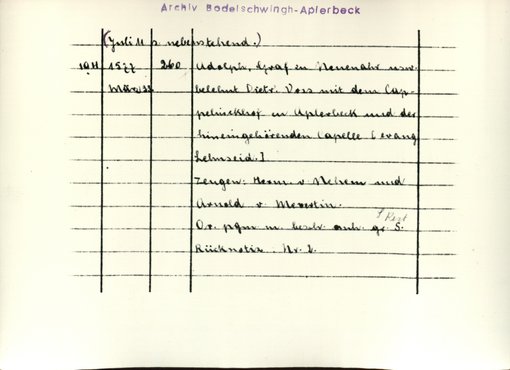 Archiv Bodelschwingh-Aplerbeck
(Juli 11 s. nebenstehend.)
1577 260 Adolph, Graf zu Neuenahr usw.
März 22 belehnt Dietr. Voss mit dem Cap-
pelnickhof zu Aplerbeck und der
hineingehörenden Capelle [evang.
Lehnseid.]
Zeugen: Herm. v. Nehem und
Arnold v. Meverlin.
Rest
Or. pgm m. besch. anh. gr. S.
Rücknotiz. Nr. 2.